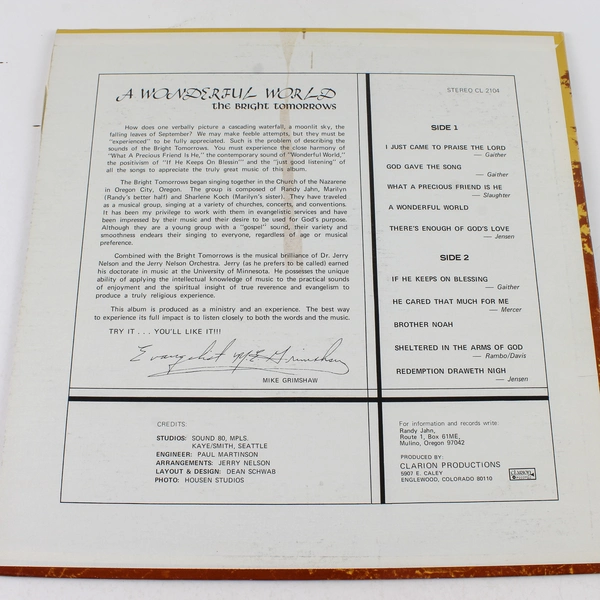 A WONDERFUL WORLD
the BRIGHT TOMORROWS
How does one verbally picture a cascading waterfall, a moonlit sky, the
falling leaves of September? We may make feeble attempts, but they must be
"experienced" to be fully appreciated. Such is the problem of describing the
sounds of the Bright Tomorrows. You must experience the close harmony of
"What A Precious Friend Is He," the contemporary sound of "Wonderful World,"
the positivism of "If He Keeps On Blessin'" and the "just good listening" of
all the songs to appreciate the truly great music of this album.
The Bright Tomorrows began singing together in the Church of the Nazarene
in Oregon City, Oregon. The group is composed of Randy Jahn, Marilyn
(Randy's better half) and Sharlene Koch (Marilyn's sister). They have traveled
as a musical group, singing at a variety of churches, concerts, and conventions.
It has been my privilege to work with them in evangelistic services and have
been impressed by their music and their desire to be used for God's purpose.
Although they are a young group with a "gospel" sound, their variety and
smoothness endears their singing to everyone, regardless of age or musical
preference.
Combined with the Bright Tomorrows is the musical brilliance of Dr. Jerry
Nelson and the Jerry Nelson Orchestra. Jerry (as he prefers to be called) earned
his doctorate in music at the University of Minnesota. He possesses the unique
ability of applying the intellectual knowledge of music to the practical sounds
of enjoyment and the spiritual insight of true reverence and evangelism to
produce a truly religious experience.
This album is produced as a ministry and an experience. The best way
to experience its full impact is to listen closely to both the words and the music.
TRY IT . . . YOU'LL LIKE IT!!!
Evangelist M E Grimshaw
MIKE GRIMSHAW
STEREO CL 2104
SIDE 1
I JUST CAME TO PRAISE THE LORD
— Gaither
GOD GAVE THE SONG
— Gaither
WHAT A PRECIOUS FRIEND IS HE
— Slaughter
A WONDERFUL WORLD
THERE'S ENOUGH OF GOD'S LOVE
— Jensen
SIDE 2
IF HE KEEPS ON BLESSING
— Gaither
HE CARED THAT MUCH FOR ME
— Mercer
BROTHER NOAH
SHELTERED IN THE ARMS OF GOD
— Rambo/Davis
REDEMPTION DRAWETH NIGH
— Jensen
CREDITS:
STUDIOS: SOUND 80, MPLS.
KAYE/SMITH, SEATTLE
ENGINEER: PAUL MARTINSON
ARRANGEMENTS: JERRY NELSON
LAYOUT & DESIGN: DEAN SCHWAB
PHOTO: HOUSEN STUDIOS
For information and records write:
Randy Jahn,
Route 1, Box 61ME,
Mulino, Oregon 97042
PRODUCED BY:
CLARION PRODUCTIONS
5907 E. CALEY
ENGLEWOOD, COLORADO 80110
clarion